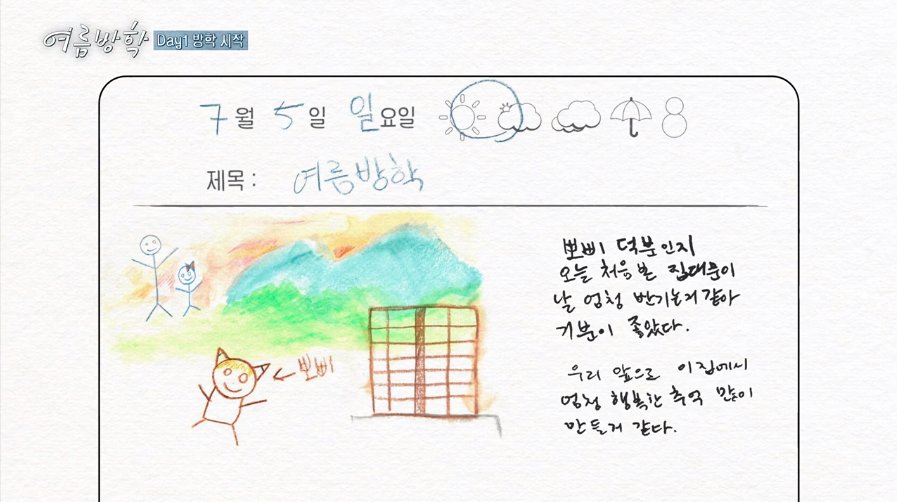 여름방학 Day1 방학 시작
7월 5일 일요일
제목 : 여름방학
뽀삐
뽀삐 덕분인지
오늘 처음본 집대문이
날 엄청 반기는거 같아
기분이 좋았다.
우리 앞으로 이집에서
엄청 행복한 추억 많이
만들거 같다.